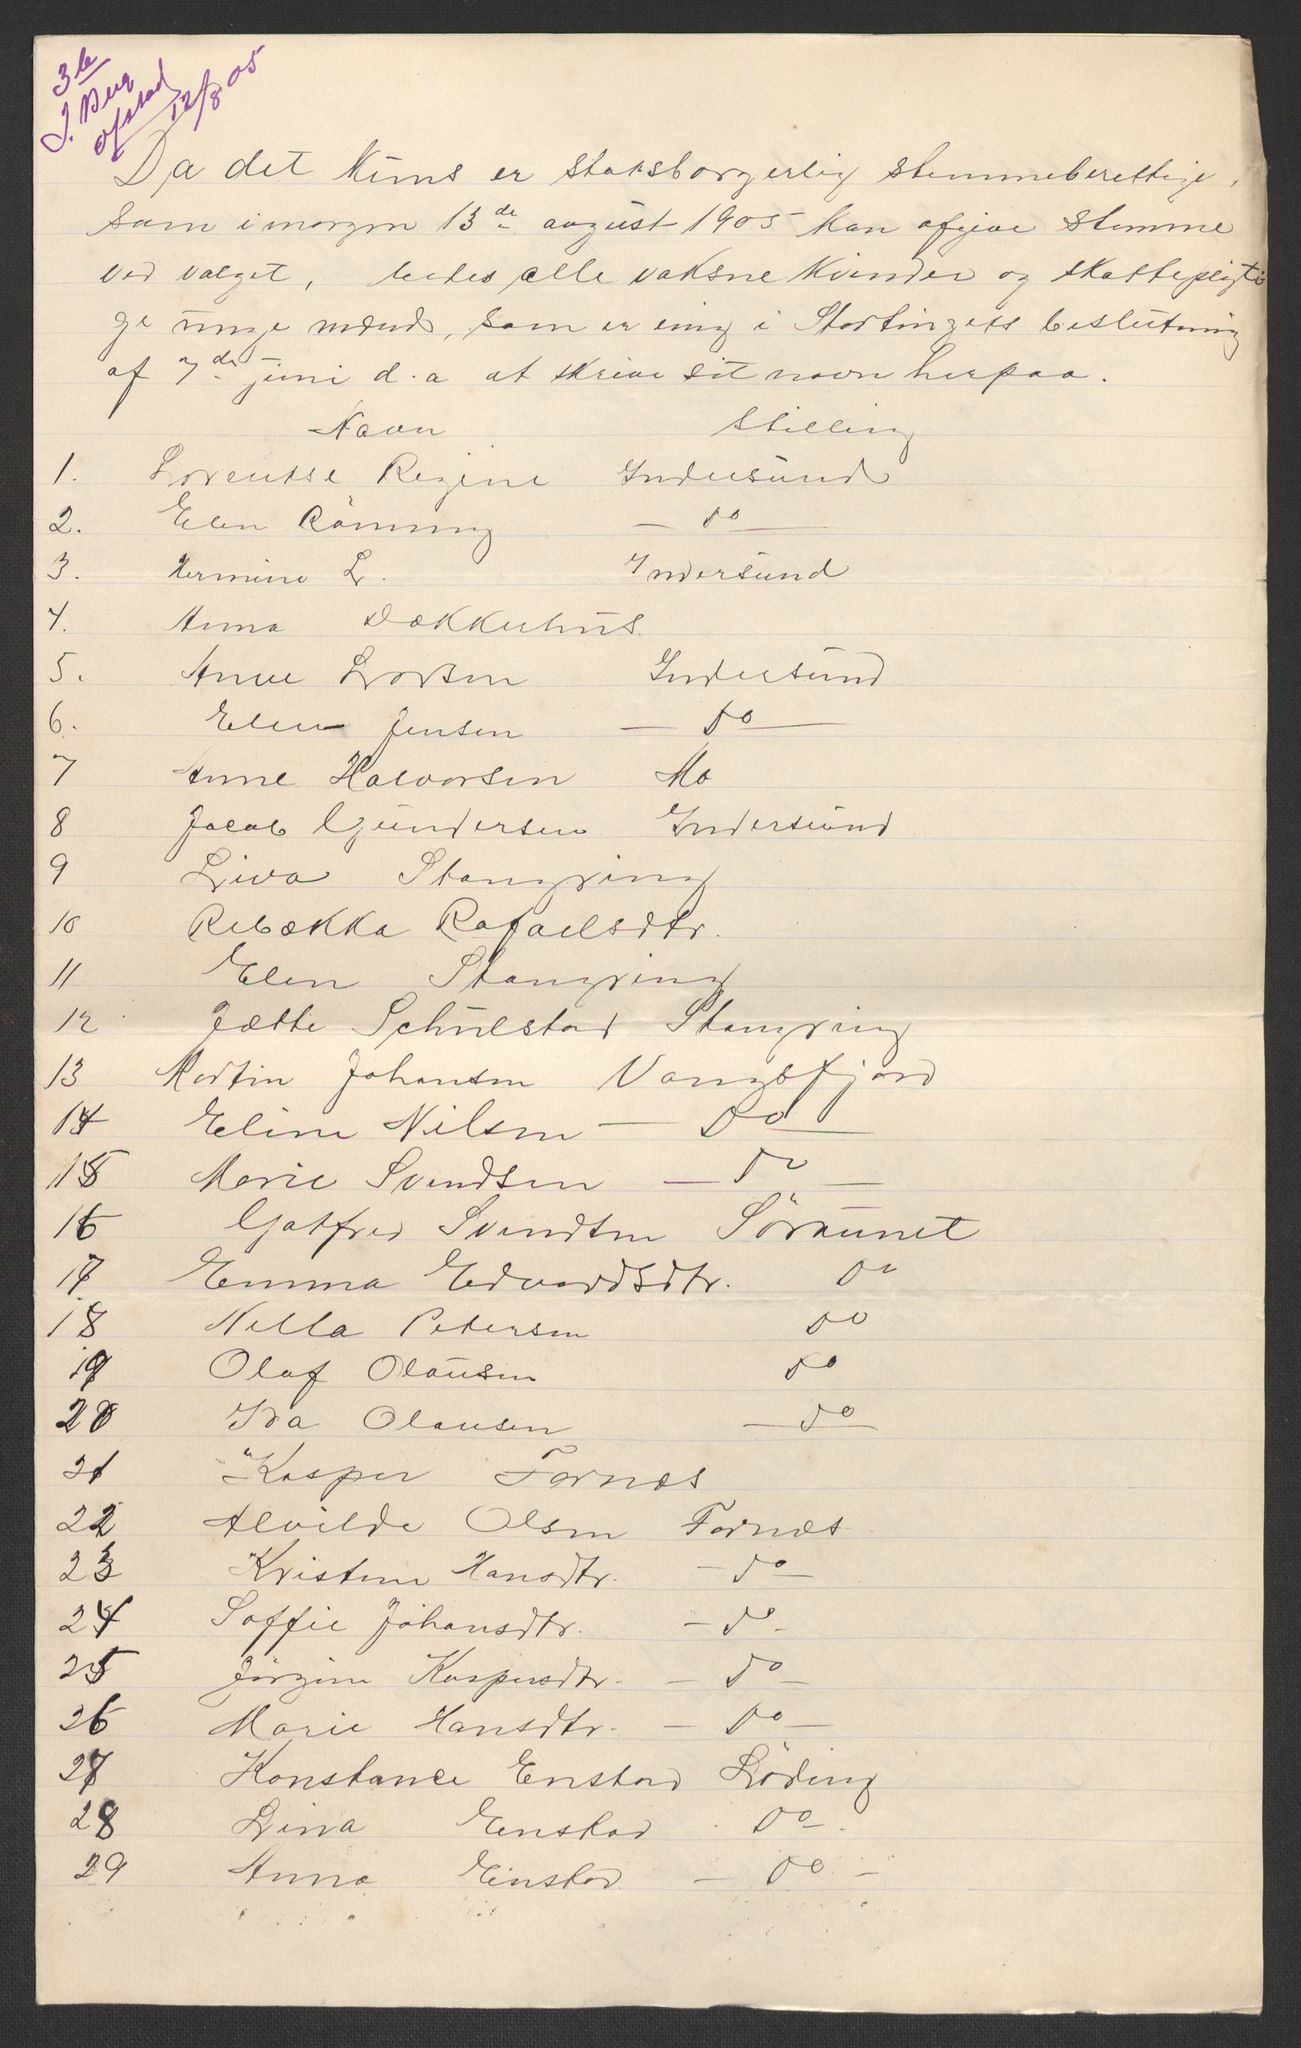 3b
J. Berg
Ofstad
12/8 05
Da det kuns er statsborgerlig stemmeberettige,
som i morgen 13de august 1905 kan afgive stemme
ved valget, bedes alle voksne kvinder og skattepligti
ge unge mænd, som er enig i Stortingets beslutning
af 7de juni d. a at skrive sit navn herpaa.
Navn Stilling
1. Lorentse Regine Indersund
2. Elen Rönning — do —
3. Hermine L. Indersund
4. Anna Dækkerhus
5. Anne Larsen Indersund
6. Elen Jensen — do —
7 Anne Halvorsen Mo
8 Jacob Gundersen Indersund
9 Liva Stangving
10 Rebækka Rafaelsdtr.
11 Elen Stangving
12 Jætte Schulstad Stangving
13 Martin Johansen Vangsfjord
14 Eline Nilsen — Do —
15 Marie Svendsen — do —
16 Gotfred Svendsen Söraunet
17 Emma Edvardsdtr. do
18 Nella Petersen do
19 Olaf Olausen do
20 Ida Olausen — do —
21 Kasper Fornæs
22 Alvilde Olsen Fornæs
23 Kristine Hansdtr. — do —
24 Soffie Johansdtr. — do —
25 Jörgine Kaspersdtr. — do —
26 Marie Hansdtr. — do —
27 Konstance Enstad Löding
28 Lina Enstad do
29 Anna Einstad — do —